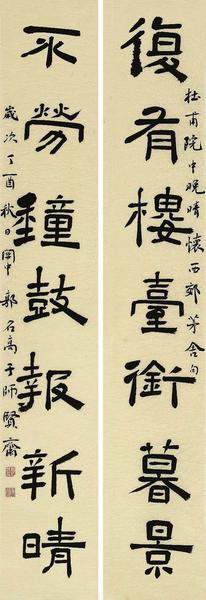 杜甫院中晚晴懷西郊茅舍句
復有樓臺銜暮景
不勞鐘鼓報新晴
歲次丁酉秋日關中郭石高于師賢齋